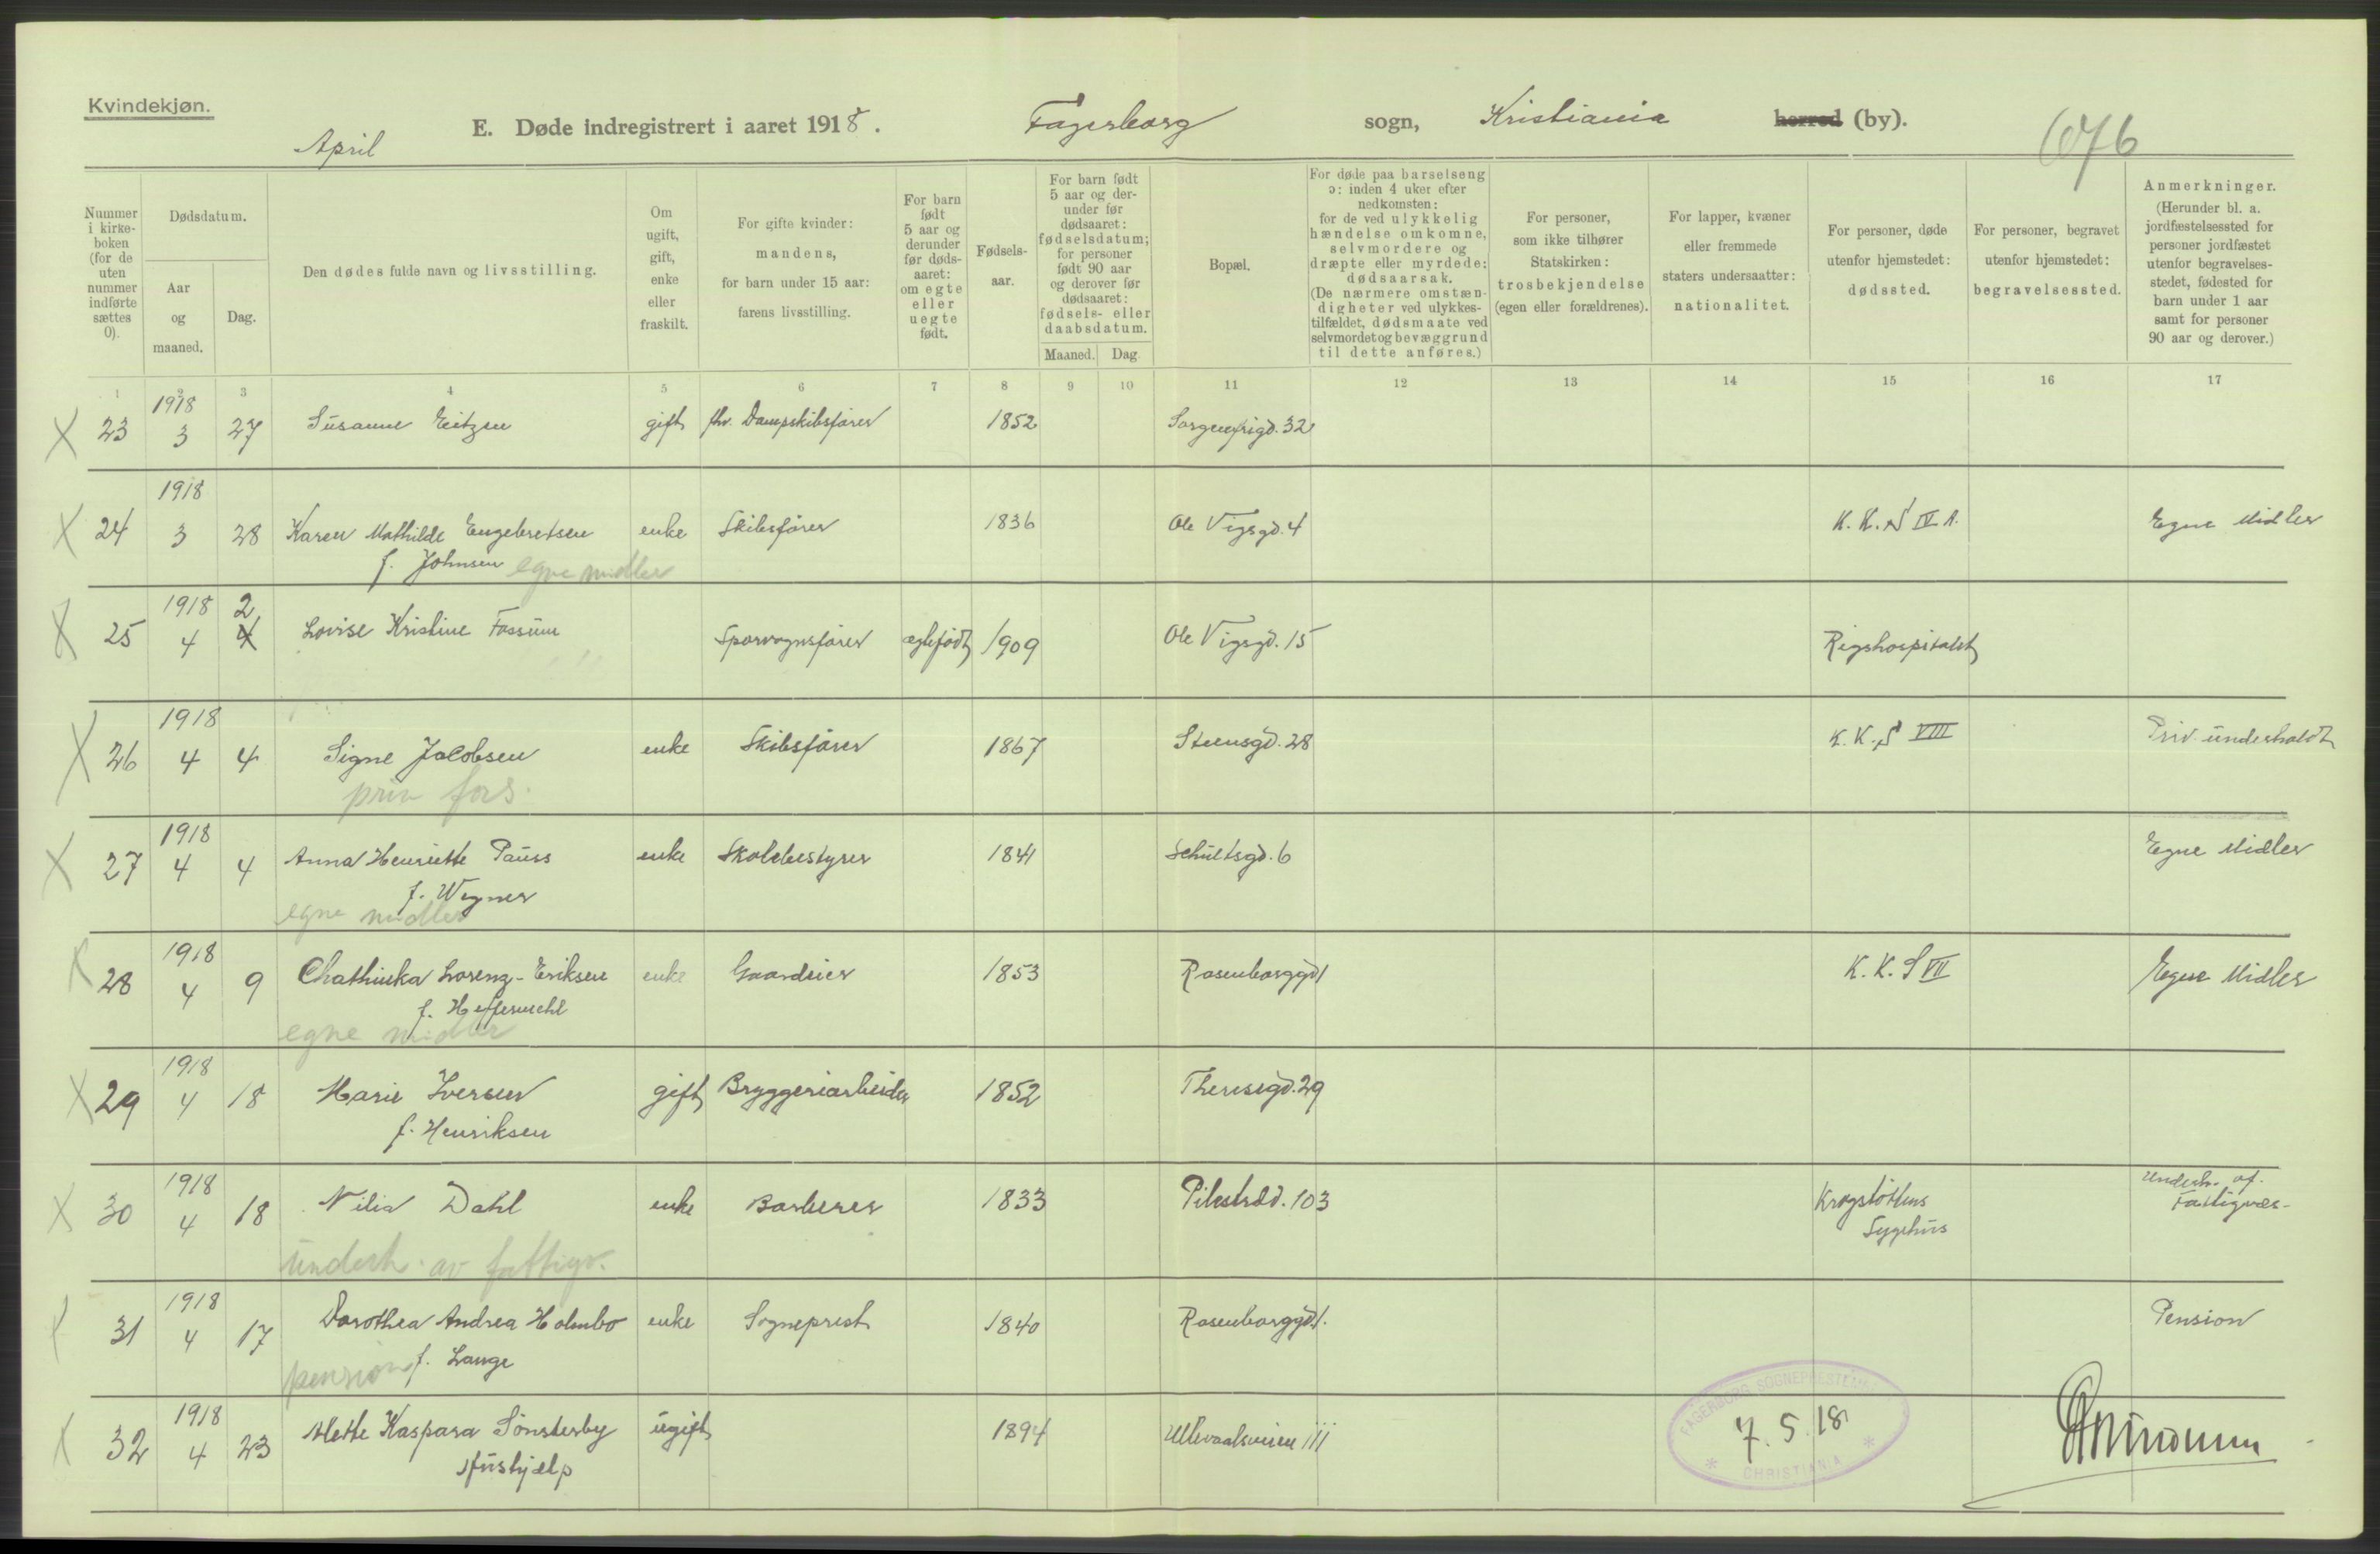 Kvindekjøn.
April
E. Døde indregistrert i aaret 1918.
Fagerborg sogn, Kristiania herred (by).
676
Nummer i kirke-boken (for de uten nummer indførte sættes 0).
Dødsdatum.
Aar og maaned.
Dag.
Den dødes fulde navn og livsstilling.
Om ugift, gift, enke eller fraskilt.
For gifte kvinder: mandens, for barn under 15 aar: farens livsstilling.
For barn født 5 aar og derunder før døds-aaret: om egte eller uegte født.
Fødsels-aar.
For barn født 5 aar og der-under før dødsaaret: fødselsdatum; for personer født 90 aar og derover før dødsaaret: fødsels- eller daabsdatum.
Maaned. Dag
Bopæl.
For døde paa barselseng ɔ: inden 4 uker efter nedkomsten: for de ved ulykkelig hændelse omkomne, selvmordere og dræpte eller myrdede: dødsaarsak. (De nærmere omstæn-digheter ved ulykkes-tilfældet, dødsmaate ved selvmordet og bevæggrund til dette anføres.)
For personer, som ikke tilhører Statskirken: trosbekjendelse (egen eller forældrenes).
For lapper, kvæner eller fremmede staters undersaatter: nationalitet.
For personer, døde utenfor hjemstedet: dødssted.
For personer, begravet utenfor hjemstedet: begravelsessted.
Anmerkninger. (Herunder bl. a. jordfæstelsessted for personer jordfæstet utenfor begravelses-stedet, fødested for barn under 1 aar samt for personer 90 aar og derover.)
1 2 3 4 5 6 7 8 9 10 11 12 13 14 15 16 17
X 23 1918 3 27 Susanne Eitzen gift fhv. Dampskibsfører 1852 Sorgenfrigd. 32
X 24 1918 3 28 Karen Mathilde Engebretsen enke Skibsfører 1836 Ole Vigsgd. 4 K. K. S IV A. Egne Midler
f. Johnsen egne midler
X 25 1918 4 2 Lovise Kristine Fossum Sporvognsfører egtefødt 1909 Ole Vigsgd. 15 Rigshospitalet
X 26 1918 4 4 Signe Jacobsen enke Skibsfører 1867 Steensgd. 28 K. K. S VIII Priv. underholdt
priv fors.
X 27 1918 4 4 Anna Henriette Pauss enke Skolebestyrer 1841 Schultsgd. 6 Egne Midler
f. Wegner
egne midler
X 28 1918 4 9 Chathinka Lorenz-Eriksen enke Gaardeier 1853 Rosenborggd 1 K. K. S VII Egne Midler
f. Heffermehl
egne midler
X 29 1918 4 18 Marie Iversen gift Bryggeriarbeider 1852 Theresegd. 29
f. Henriksen
X 30 1918 4 18 Nilia Dahl enke Barberer 1833 Pilestræd. 103 Krogstøttens Sygehus Underh. af. Fattigvæs-
underh. av fattigv.
X 31 1918 4 17 Dorothea Andrea Holmbo enke Sogneprest 1840 Rosenborggd 1. Pension
pension f. Lange
X 32 1918 4 23 Mette Kaspara Sønsterby ugift 1894 Ullevaalsveien 111
Hushjælp
FAGERBORG SOGNEPRESTEMBEDE
7. 5. 18
* CHRISTIANIA *